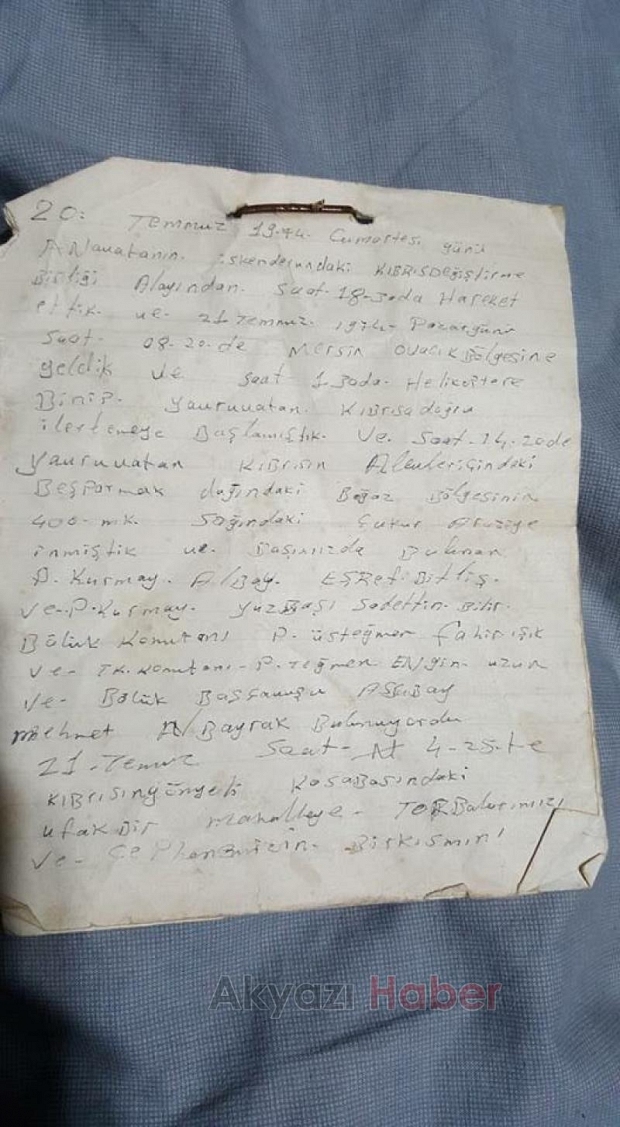 20: Temmuz 1974. Cumartesi günü
ANavatanın. iskenderundaki KIBRISDeğiştirme
Birliği Alayından. Saat-18-30da Hareket
ettik. ve. 21 Temmuz. 1974- Pazargünü
Saat. 08-20-de. Mersin OVACIK Bölgesine
geldik ve saat 1 30da. Helikoptere
Binip. Yavruvatan. Kıbrısa doğru
ilerlemeye Başlamıştık. ve. Saat-14.20de
Yavruvatan KIBRISIN
BEŞParmak dağındaki Boğaz Bölgesinin
400-mk. Sağındaki Çukur Araziye
inmiştik ve. Başımızda Bulunan
P. Kurmay. AlBay. EŞREf. Bitlis.
ve-P.Kurmay. yüzBaşı Sadettin. Bilir.
Bölük Komutanı P. üsteğmen fahir ışık
ve- TK.Komutanı-P.Teğmen ENgin. uzun
ve- Bölük Başçavuşu AsSBay
mehmet A/Bayrak Bulunuyordu
21-Temuz Saat- 4-25-te
KIBRISIN gönyeli KasaBasındaki
ufak Bir Mahalleye- TORBalarımızı
ve- CePhanemizin. Birkısmını
Akyazı Haber